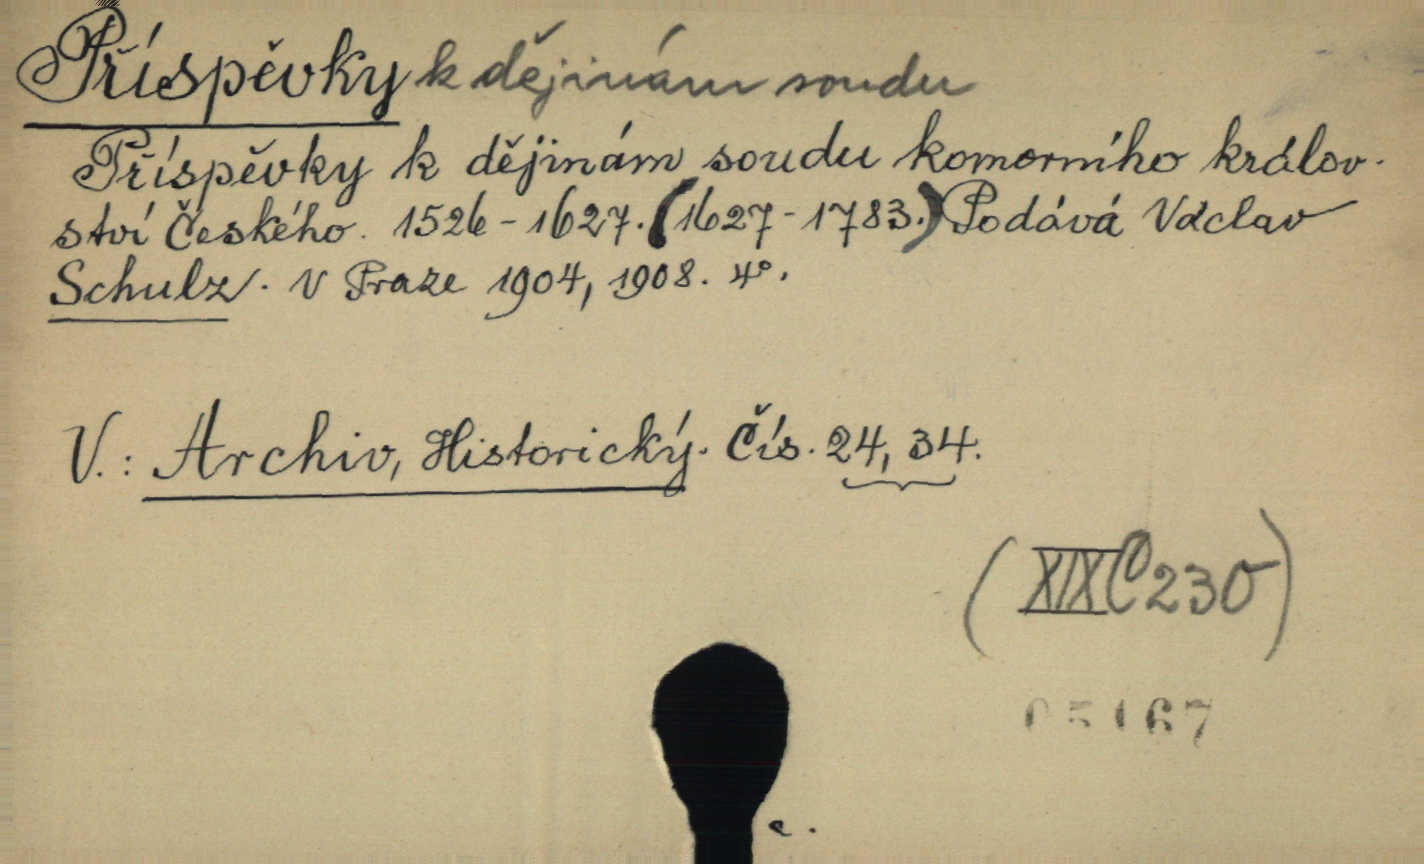 Příspěvky k dějinám soudu
Příspěvky k dějinám soudu komorního králov-
ství Českého. 1526-1627. (1627-1783.) Podává Václav
Schulz. V Praze 1904, 1908. 4°.
V.: Archiv, Historický. Čís. 24, 34.
(XIX C 230)
05167
c.